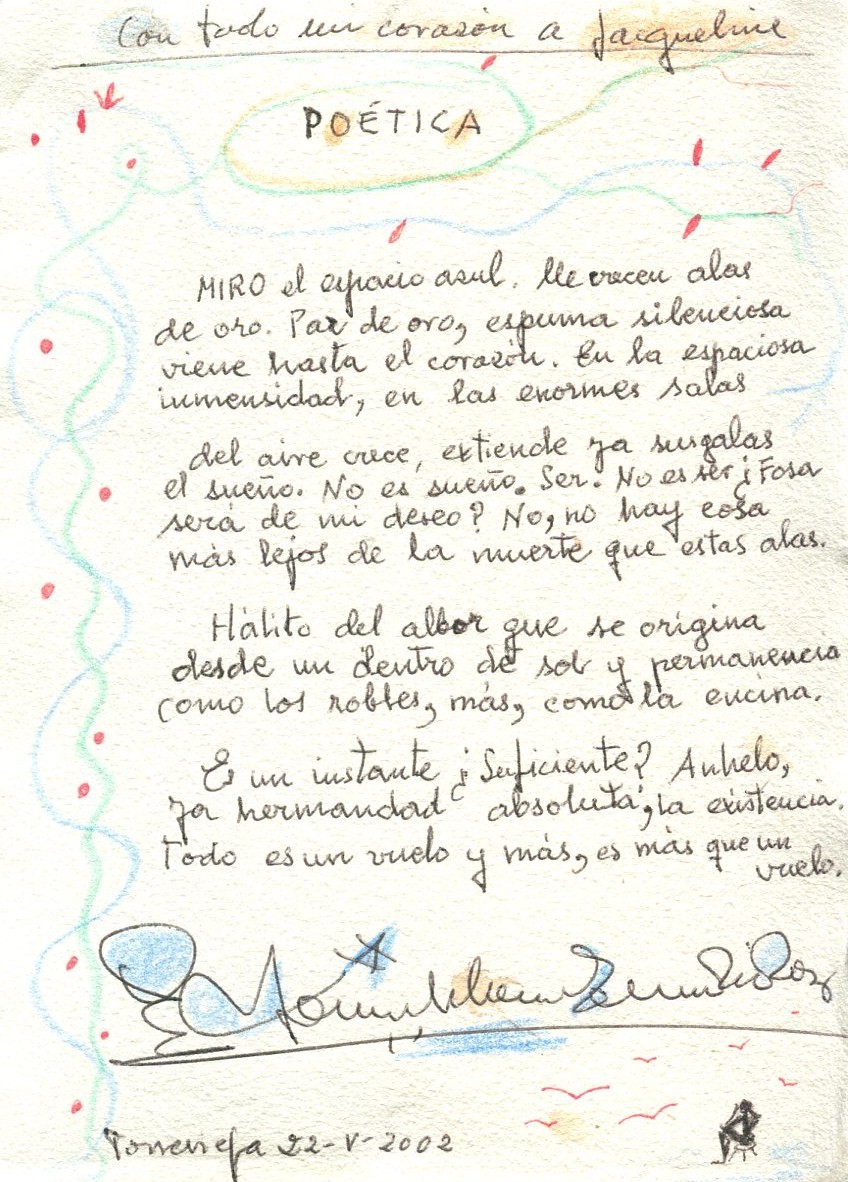 Con todo mi corazón a Jacqueline
POÉTICA
MIRO el espacio azul. Me crecen alas
de oro. Paz de oro, espuma silenciosa
viene hasta el corazón. En la espaciosa
inmensidad, en las enormes salas
del aire crece, extiende ya sus galas
el sueño. No es sueño. Ser. No es ser ¿Fosa
será de mi deseo? No, no hay cosa
más lejos de la muerte que estas alas.
Hálito del albor que se origina
desde un dentro de sol y permanencia
como los robles, más, como la encina.
Es un instante ¿Suficiente? Anhelo,
ya hermandad absoluta, la existencia.
Todo es un vuelo y más, es más que un
vuelo.
Torrevieja 22-V-2002